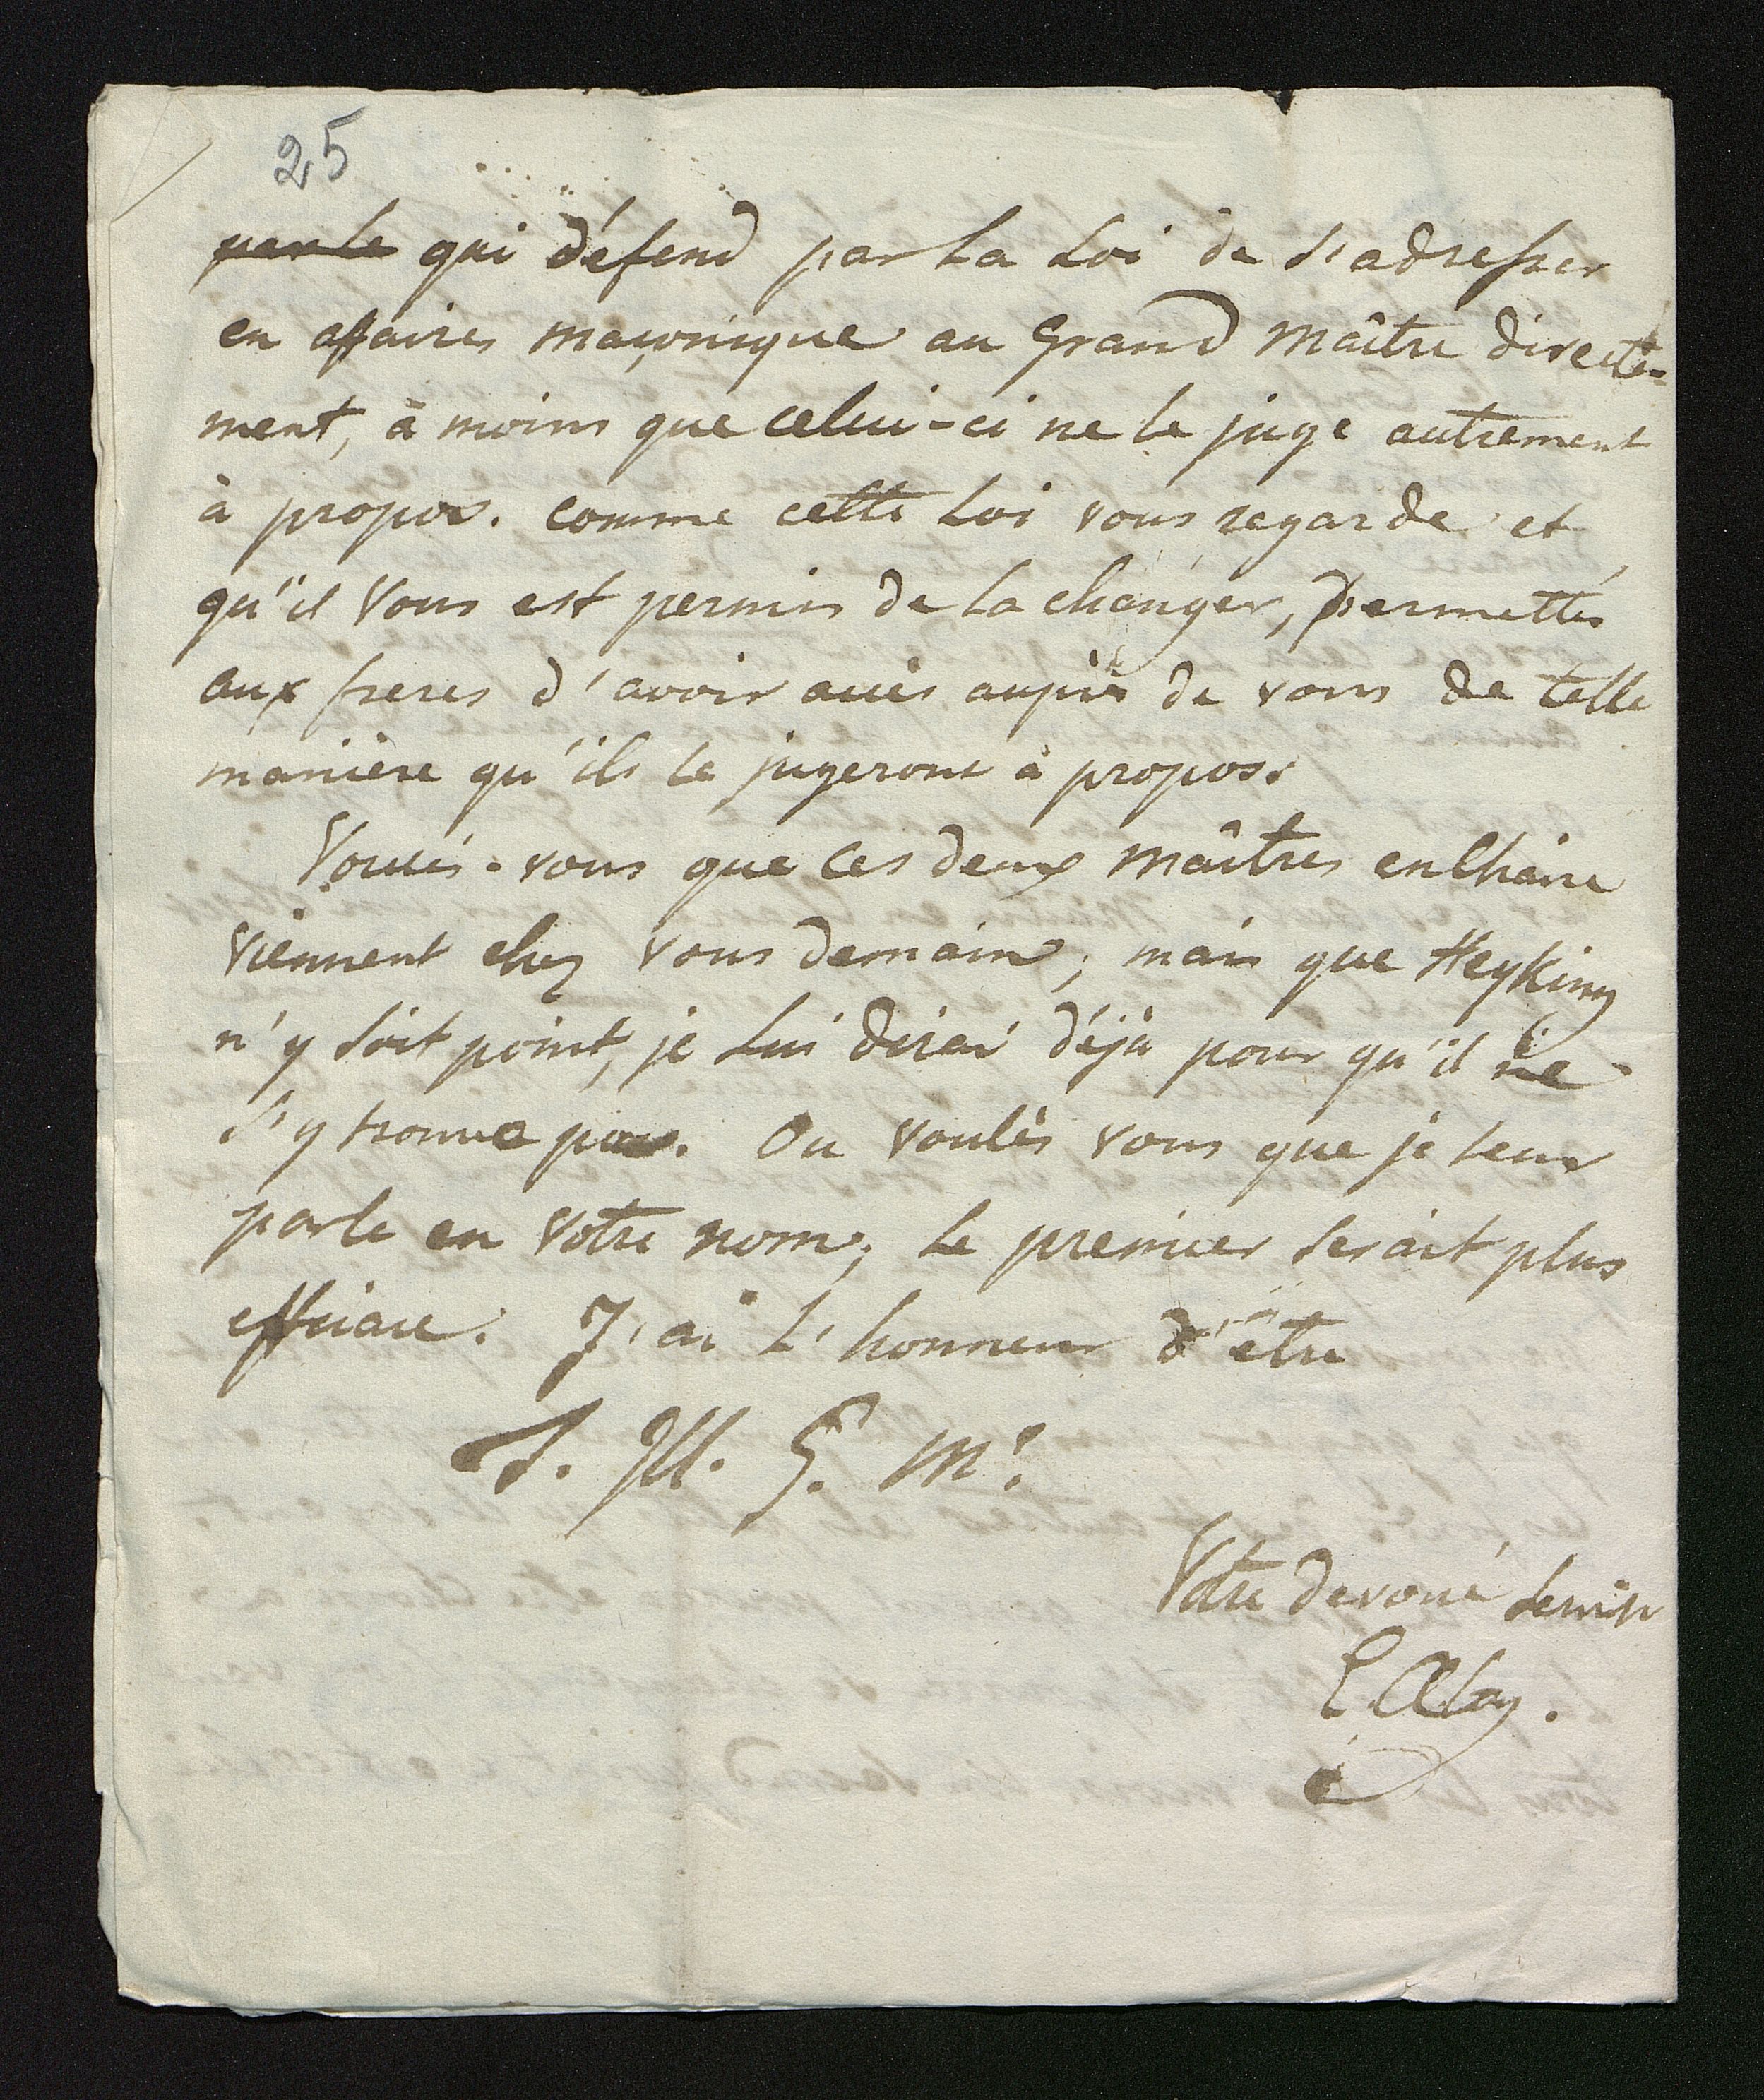 25
par le qui défend par la Loi de s'adresser
en affaires maçonique au Grand Maître directe=
ment, à moins que celui-ci ne le juge autrement
à propos. comme cette Loi vous regarde et
qu'il vous est permis de la changer, permettés
aux freres d'avoir accès auprès de vous de telle
manière qu'ils le jugeront à propos.
Voulés-vous que ces deux Maîtres en Chaire
viennent chez vous demain; mais que Heyking
n'y soit point, je lui dirai déjà pour qu'il ne
s'y trouve pas. Ou voulés vous que je leur
parle en votre nom; le premier serait plus
efficace. J'ai l'honneur d'être
T. Ill. G. M.
Votre devoué